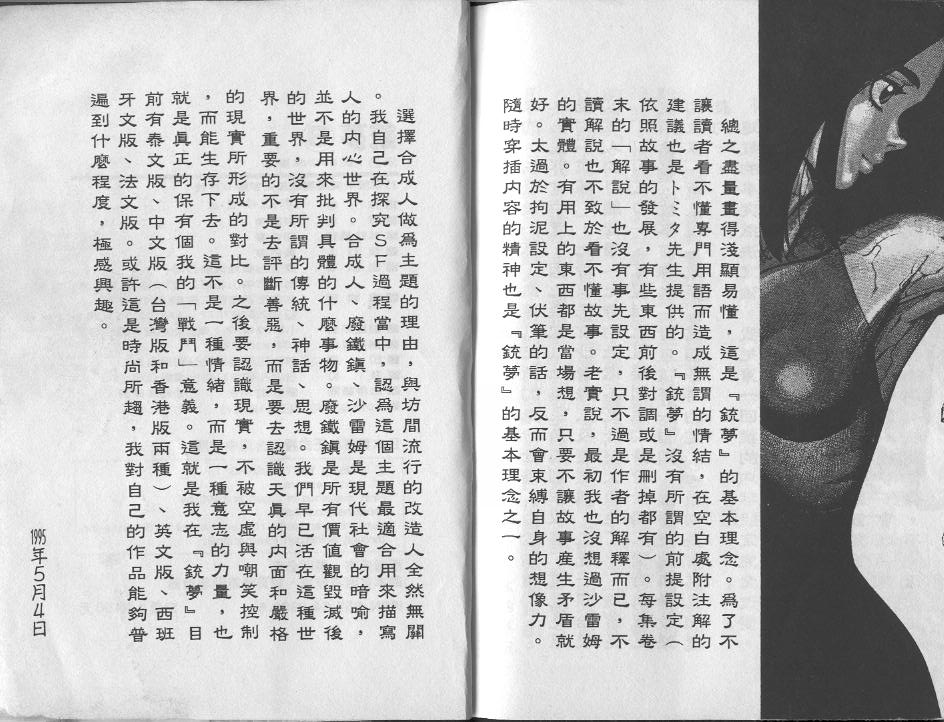 總之盡量畫得淺顯易懂，這是『銃夢』的基本理念。爲了不
讓讀者看不懂專門用語而造成無謂的情結，在空白處附注解的
建議也是トミタ先生提供的。『銃夢』沒有所謂的前提設定（
依照故事的發展，有些東西前後對調或是刪掉都有）。每集卷
末的「解說」也沒有事先設定，只不過是作者的解釋而已，不
讀解說也不致於看不懂故事。老實說，最初我也沒想過沙雷姆
的實體。有用上的東西都是當場想，只要不讓故事産生矛盾就
好。太過於拘泥設定、伏筆的話，反而會束縛自身的想像力。
隨時穿插內容的精神也是『銃夢』的基本理念之一。
選擇合成人做爲主題的理由，與坊間流行的改造人全然無關
。我自己在探究SF過程當中，認爲這個主題最適合用來描寫
人的內心世界。合成人、廢鐵鎭、沙雷姆是現代社會的暗喻，
並不是用來批判具體的什麼事物。廢鐵鎭是所有價値觀毀滅後
的世界，沒有所謂的傳統、神話、思想。我們早已活在這種世
界，重要的不是去評斷善惡，而是要去認識天眞的內面和嚴格
的現實所形成的對比。之後要認識現實，不被空虛與嘲笑控制
，而能生存下去。這不是一種情緒，而是一種意志的力量，也
就是眞正的保有個我的「戰鬥」意義。這就是我在『銃夢』目
前有泰文版、中文版（台灣版和香港版兩種）、英文版、西班
牙文版、法文版。或許這是時尚所趨，我對自己的作品能夠普
遍到什麼程度，極感興趣。
1995年5月4日